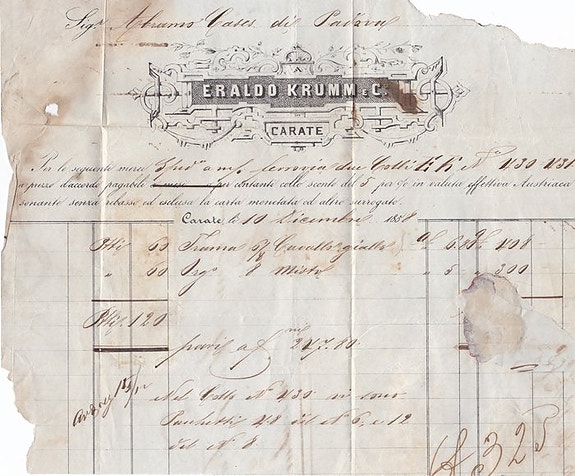 Sigr. Abramo Cases di Padova
A
ERALDO KRUMM E C.
CARATE
Per le seguente merci Spedo a mf ferrovia due Colli KK N° 430 431
a prezzo d'accordo pagabili per contante collo sconto del 5 per % in valuta effettiva Austriaca
sonante senza ribasso ed esclusa la carta monetata ed altro surrogato.
Carate, lì 10 Dicembre 1858
60 Trama Cavallo giallo 408
" 60 8 " 5 " 300
120
pari a f 247.80
Nel Collo N° 430 in
Pacchetti 48 del N° 6 e 12
del N° 8
325